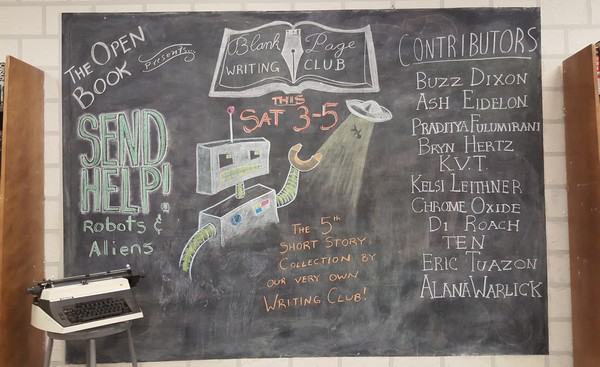 The Open
Book
Presents
Blank Page
WRITING CLUB
THIS
SAT 3-5
SEND
HELP!
Robots &
Aliens
THE 5th
SHORT STORY
COLLECTION BY
OUR VERY OWN
WRITING CLUB!
CONTRIBUTORS
BUZZ DIXON
ASH EIDELON
PRADITYA FULUMIRANI
BRYN HERTZ
K.V.T.
KELSI LEITHNER
CHROME OXIDE
DI ROACH
TEN
ERIC TUAZON
ALANA WARLICK